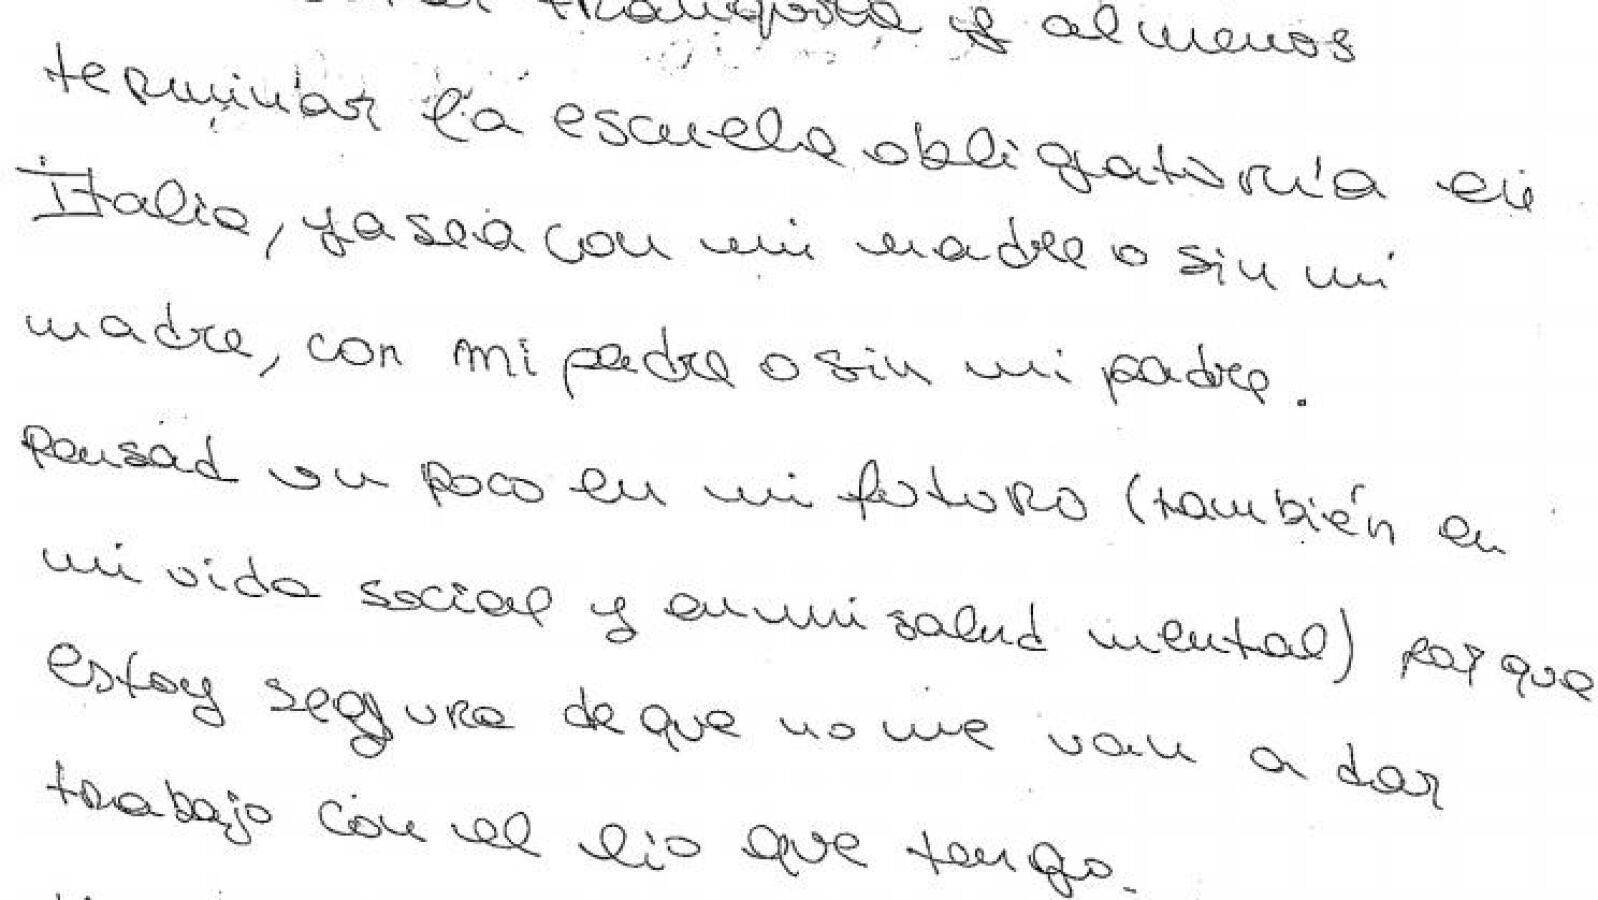 tranquila y al menos
terminar la escuela obligatoria en
Italia, ya sea con mi madre o sin mi
madre, con mi padre o sin mi padre.
pensad un poco en mi futuro (también en
mi vida social y en mi salud mental) porque
estoy segura de que no me van a dar
trabajo con el lio que tengo.